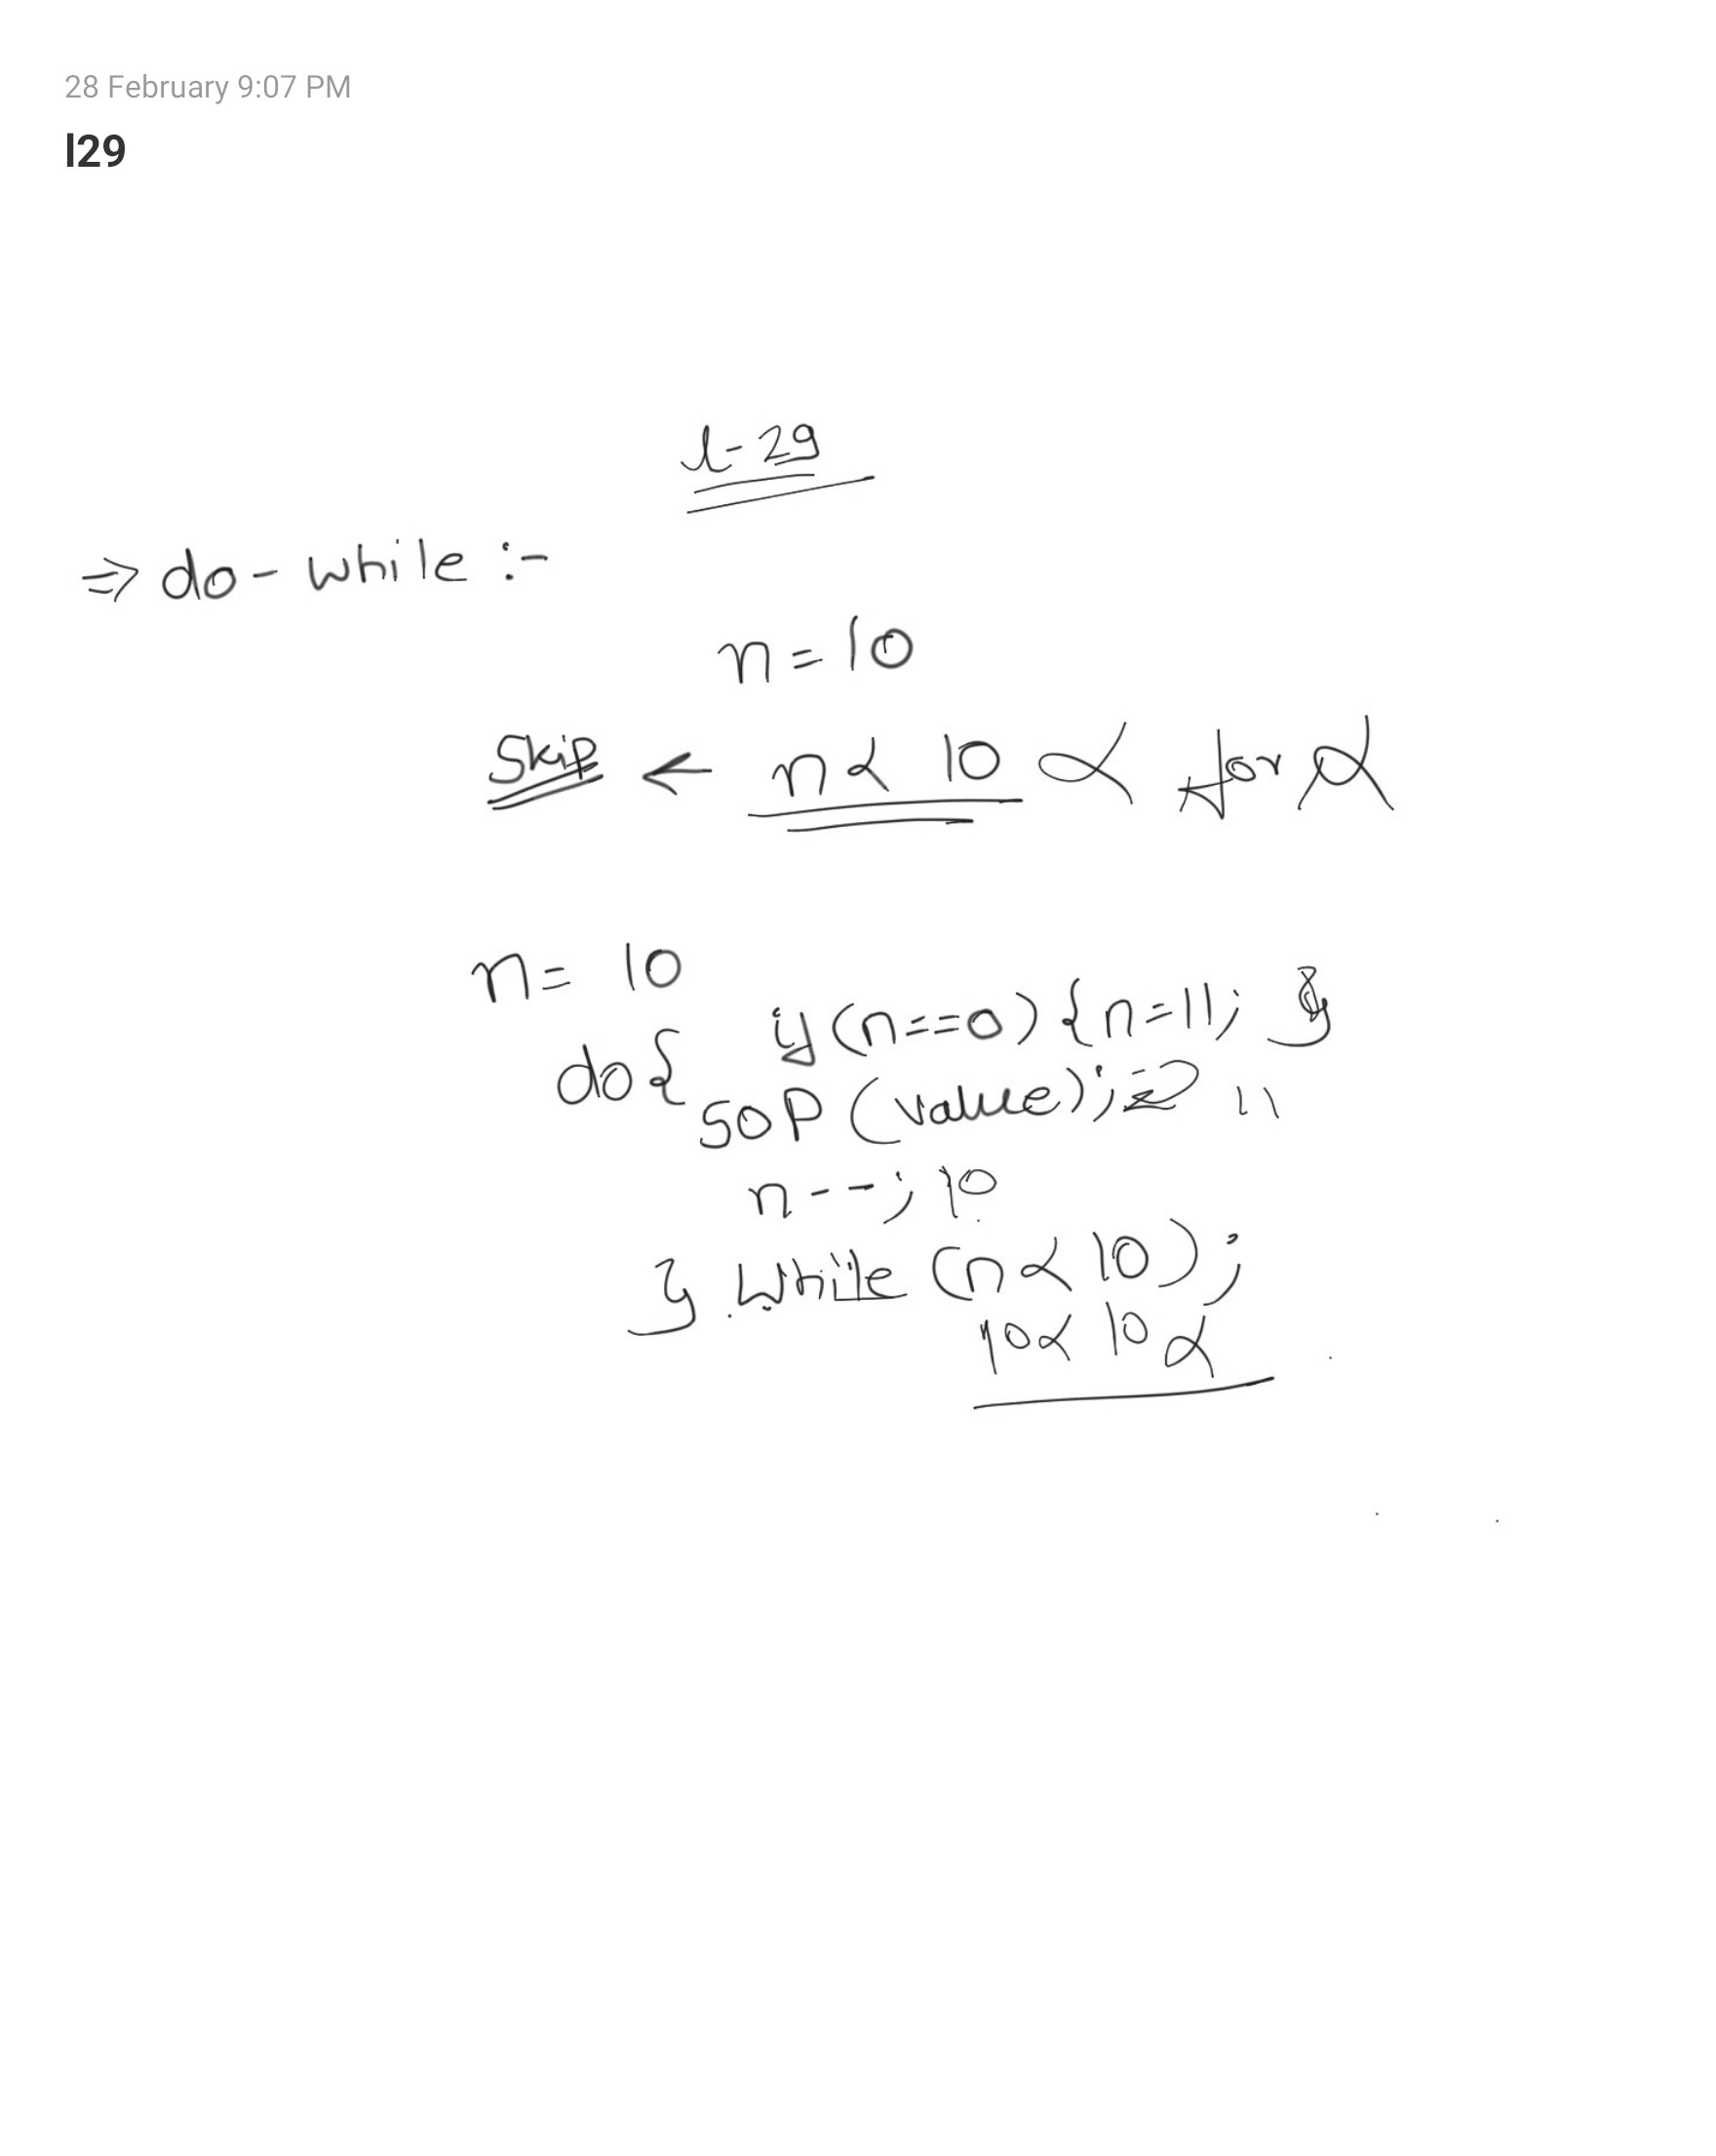 28 February 9:07 PM
l29
l-29
⇒ do-while :-
n = 10
Skip ← n < 10 × for ×
n = 10
if (n==0) {n=11; }
do{
SOP (value); ⇒ 11
n--; 10
} while (n < 10);
10 < 10 ×